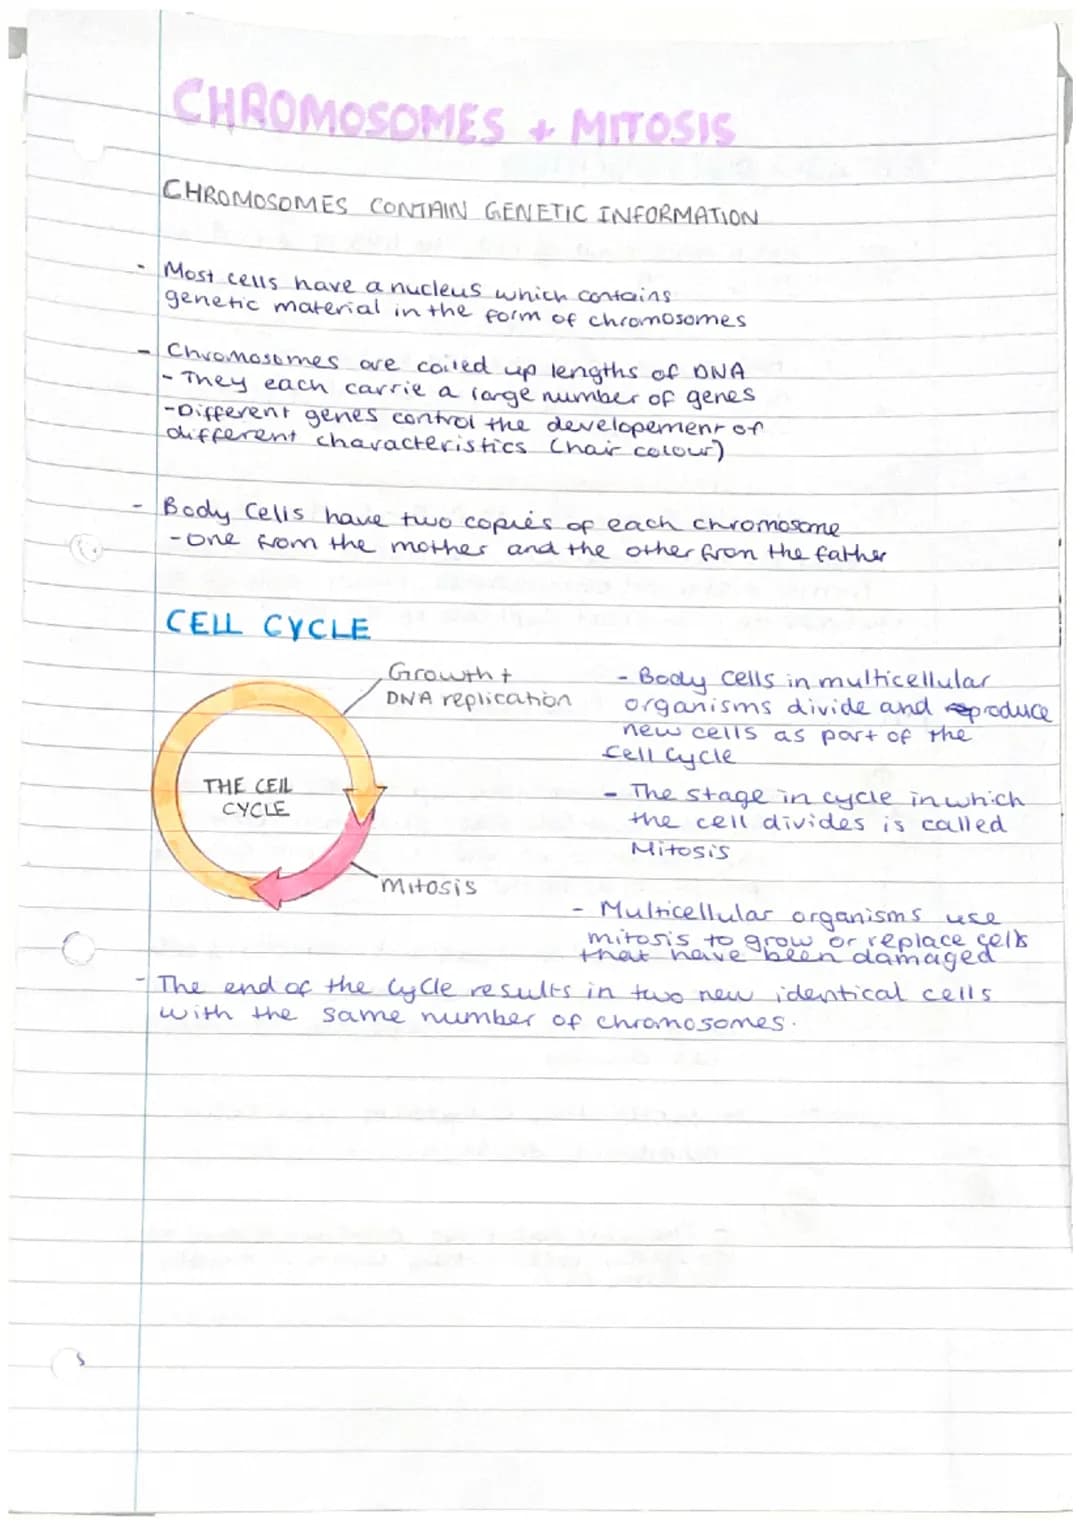 CHROMOSOMES + MITOSIS
CHROMOSOMES CONTAIN GENETIC INFORMATION
- Most cells have a nucleus which contains
genetic material in the form of chromosomes
- Chromosomes are coiled up lengths of DNA
- They each carrie a large number of genes
- Different genes control the developement of
different characteristics (hair colour)
- Body Cells have two copies of each chromosome
- one from the mother and the other from the father
CELL CYCLE
Growth +
DNA replication
THE CELL
CYCLE
Mitosis
- Body cells in multicellular
organisms divide and reproduce
new cells as part of the
Cell Cycle
- The stage in cycle in which
the cell divides is called
Mitosis
- Multicellular organisms use
mitosis to grow or replace cells
that have been damaged
- The end of the cycle results in two new identical cells
with the same number of chromosomes.